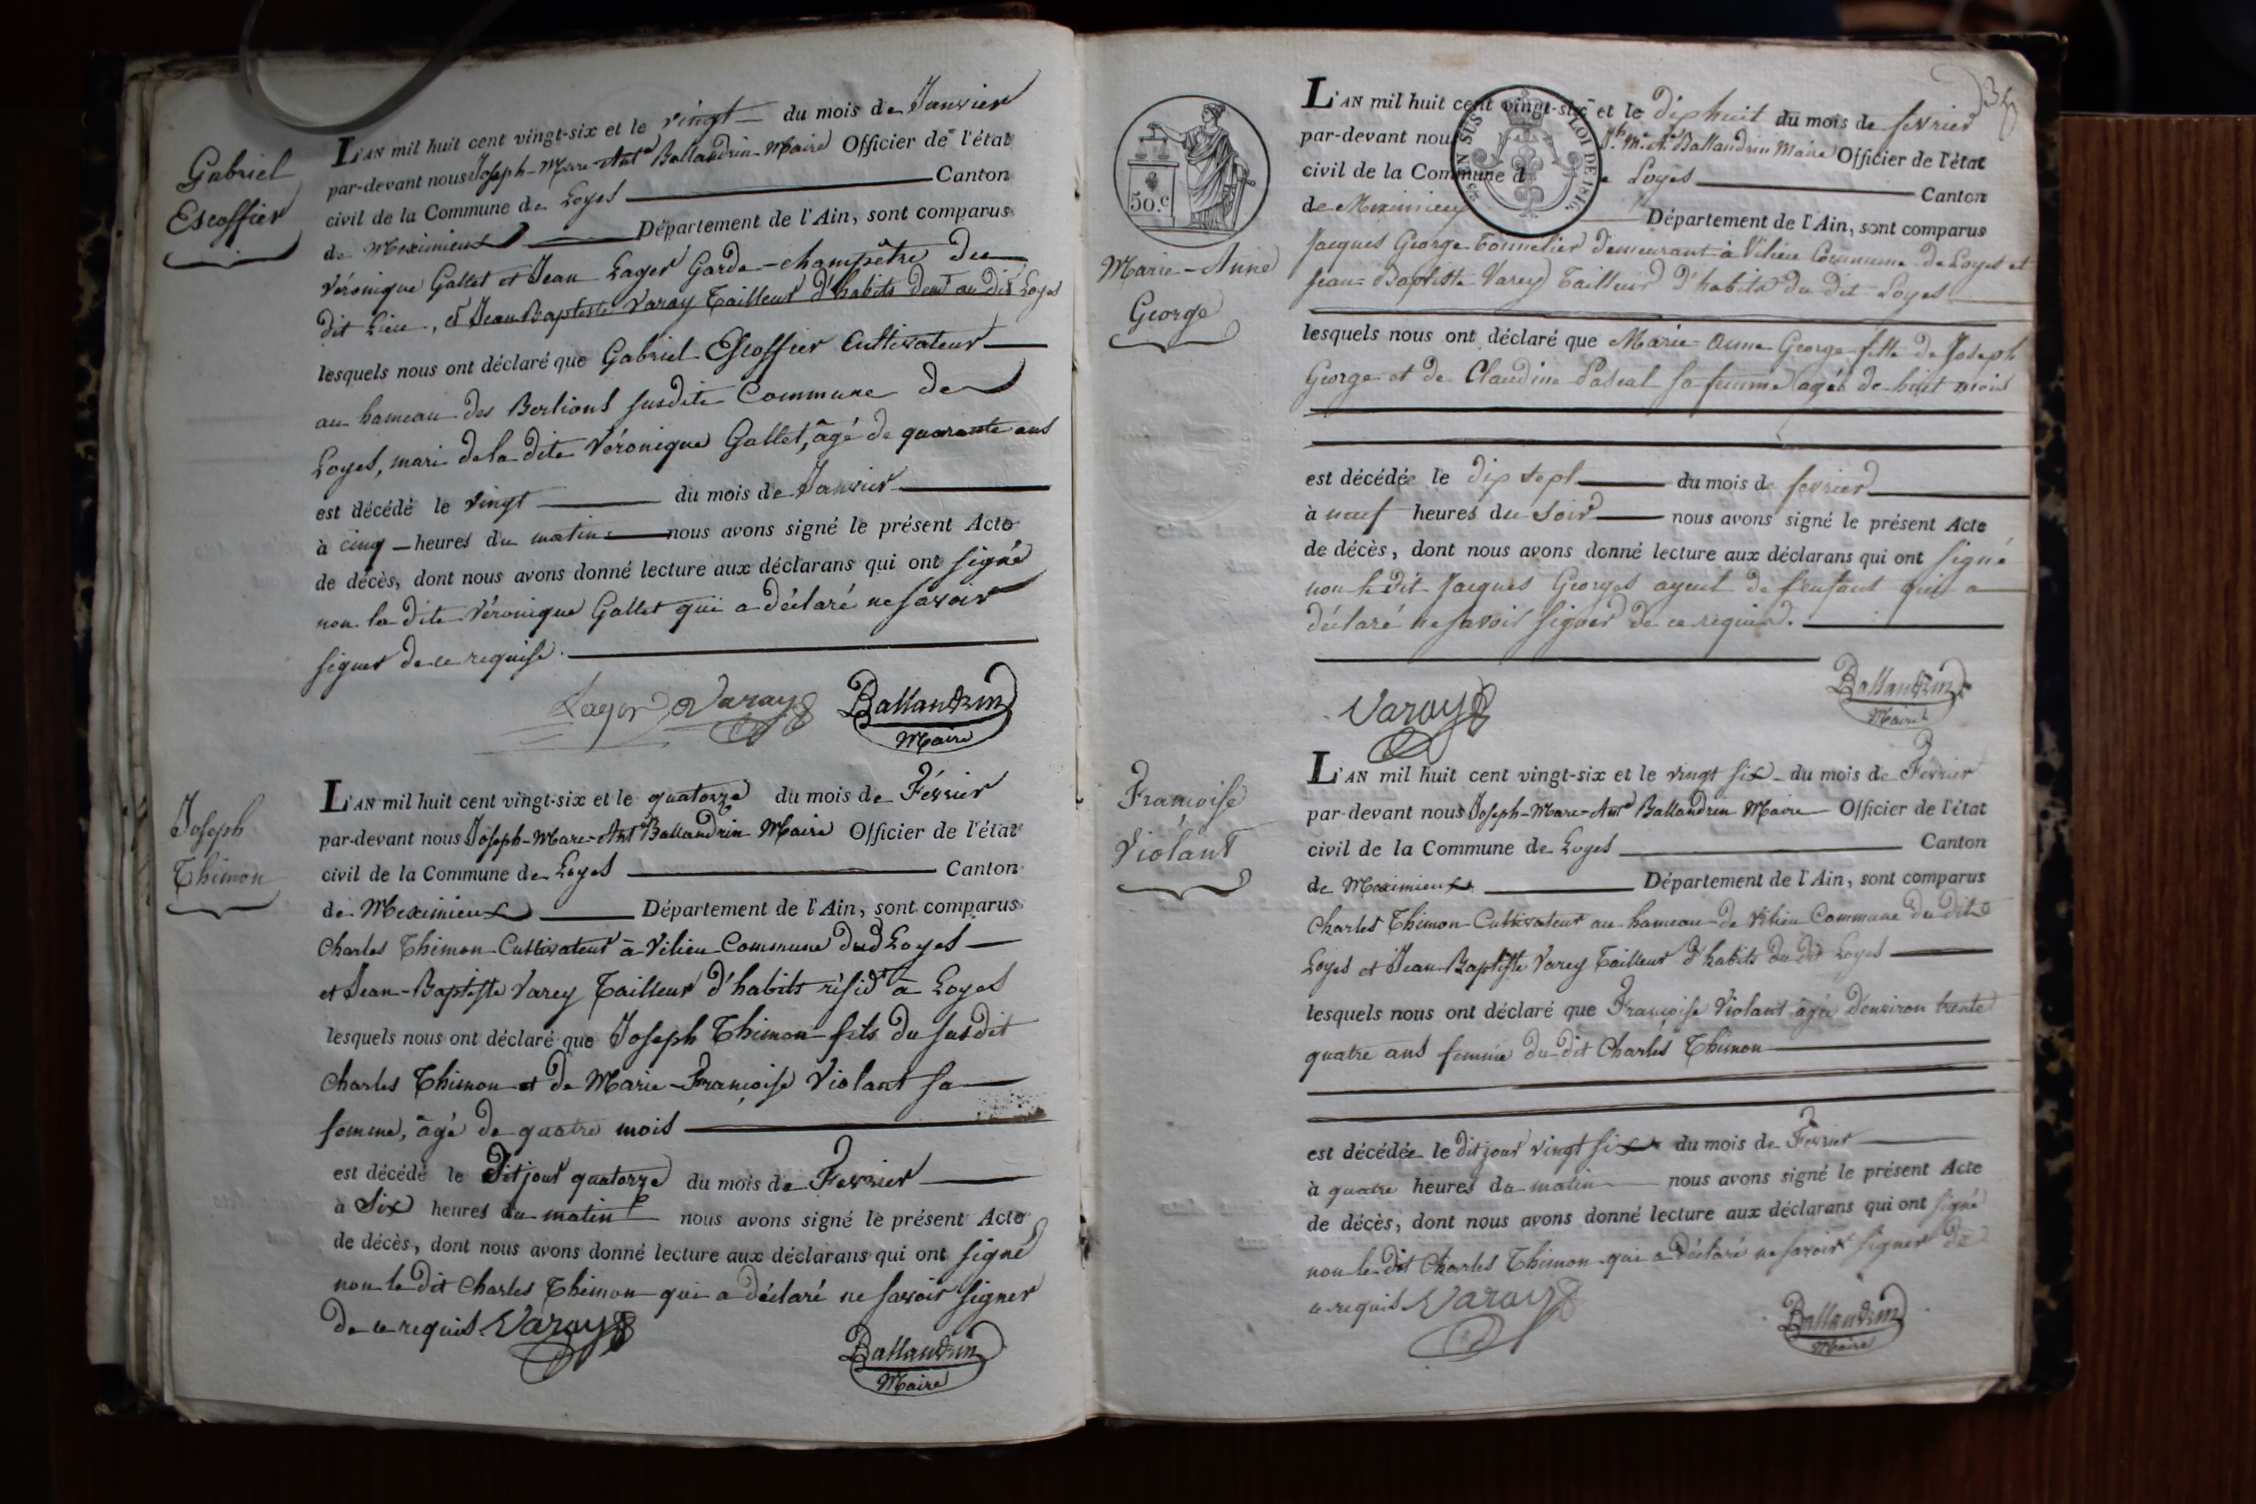 Gabriel
Escoffier
L'AN mil huit cent vingt-six et le vingt du mois de Janvier
par-devant nous Joseph-Marc-Ant.e Ballandrin Maire Officier de l'état
civil de la Commune de Loyes Canton
de Meximieux Département de l'Ain, sont comparus
Véronique Gallet et Jean Lager Garde-champêtre du
dit Lieu, et Jean Baptiste Varay Tailleur d'habits dem.t au dit Loyes
lesquels nous ont déclaré que Gabriel Escoffier Cultivateur
au hameau des Berlions susdite Commune de
Loyes, mari de la dite Véronique Gallet, âgé de quarante ans
est décédé le vingt du mois de Janvier
à cinq heures du matin nous avons signé le présent Acte
de décès, dont nous avons donné lecture aux déclarans qui ont signé
non la dite Véronique Gallet qui a déclaré ne savoir
signer de ce requise.
Lager Varay Ballandrin
Maire
Joseph
Thimon
L'AN mil huit cent vingt-six et le quatorze du mois de Février
par-devant nous Joseph-Marc-Ant.e Ballandrin Maire Officier de l'état
civil de la Commune de Loyes Canton
de Meximieux Département de l'Ain, sont comparus
Charles Thimon Cultivateur à Vilieu Commune dud Loyes
et Jean-Baptiste Varey Tailleur d'habits résid.t à Loyes
lesquels nous ont déclaré que Joseph Thimon fils du susdit
Charles Thimon et de Marie-Françoise Violant sa
femme, âgé de quatre mois
est décédé le Dit jour quatorze du mois de Fevrier
à Six heures du matin nous avons signé le présent Acte
de décès, dont nous avons donné lecture aux déclarans qui ont signé
non le dit Charles Thimon qui a déclaré ne savoir signer
de ce requis Varay
Ballandrin
Maire
50.c
EN SUS
LOI DE 1816
Marie-Anne
George
L'AN mil huit cent vingt-six et le dix huit du mois de fevrier
par-devant nous J.h M.c A.e Ballandrin Maire Officier de l'état
civil de la Commune de Loyes Canton
de Meximieux Département de l'Ain, sont comparus
Jacques George Tonnelier demeurant à Vilieu Commune de Loyes et
Jean-Baptiste Varey Tailleur d'habits du dit Loyes
lesquels nous ont déclaré que Marie-Anne George fille de Joseph
George et de Claudine Pascal sa femme agée de huit mois
est décédée le dix sept du mois de fevrier
à neuf heures du soir nous avons signé le présent Acte
de décès, dont nous avons donné lecture aux déclarans qui ont signé
non le dit Jacques Georges ayeul de l'enfant qui a
déclaré ne savoir signer de ce requis.
Varay
Ballandrin
Maire
Françoise
Violant
L'AN mil huit cent vingt-six et le vingt six du mois de Fevrier
par-devant nous Joseph-Marc-Ant.e Ballandrin Maire Officier de l'état
civil de la Commune de Loyes Canton
de Meximieux Département de l'Ain, sont comparus
Charles Thimon Cultivateur au hameau de Vilieu Commune du dit
Loyes et Jean-Baptiste Varey Tailleur d'habits du dit Loyes
lesquels nous ont déclaré que Françoise Violant âgée d'environ trente
quatre ans femme du dit Charles Thimon
est décédée le dit jour vingt six du mois de Fevrier
à quatre heures du matin nous avons signé le présent Acte
de décès, dont nous avons donné lecture aux déclarans qui ont signé
non le dit Charles Thimon qui a déclaré ne savoir signer de
ce requis Varay
Ballandrin
Maire